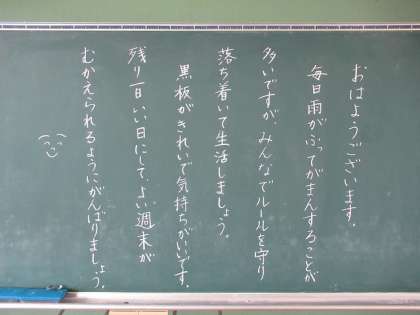 おはようございます。
毎日雨がふってがまんすることが
多いですが、みんなでルールを守り
落ち着いて生活しましょう。
黒板がきれいで気持ちがいいです。
残り一日いい日にして、よい週末が
むかえられるようにがんばりましょう。